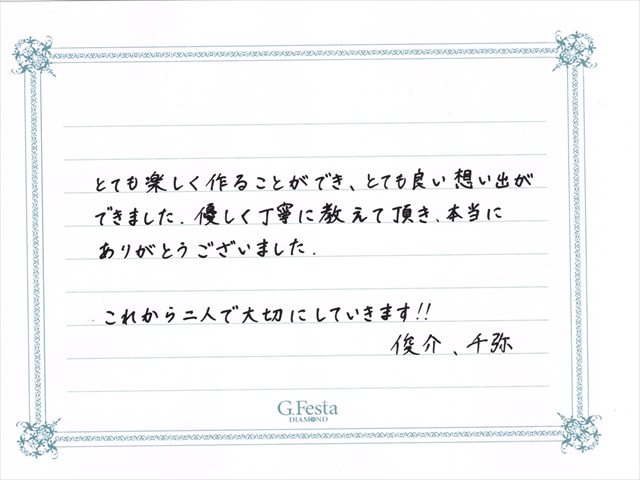 とても楽しく作ることができ、とても良い想い出が
できました. 優しく丁寧に教えて頂き、本当に
ありがとうございました.
これから二人で大切にしていきます!!
俊介、千弥
G.Festa
DIAMOND